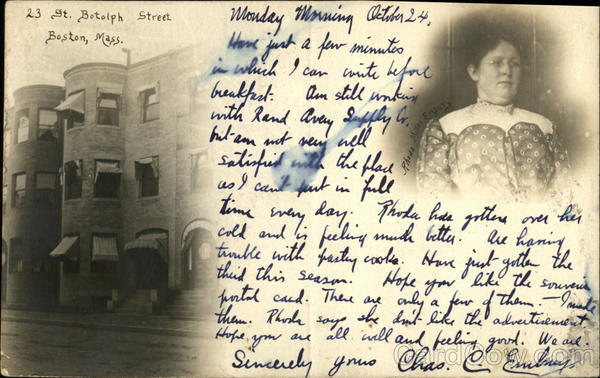 23 St. Botolph Street
Boston, Mass.
Monday Morning October 24,
Have just a few minutes
in which I can write before
breakfast. Am still working
with Rand Avery Supply Co,
but am not very well
satisfied with the place
as I can't put in full
time every day. Rhoda has gotten over her
cold and is feeling much better. Are having
trouble with pastry cooks. Have just gotten the
third this season. Hope you like the souvenir
postal card. There are only a few of them. I made
them. Rhoda says she don't like the advertisement
Hope you are all well and feeling good. We are.
Sincerely yours Chas. C.
CardCow.com